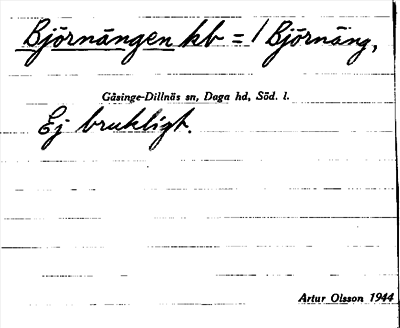 Björnängen kb = 1 Björnäng,
Gåsinge-Dillnäs sn, Daga hd, Söd. l.
Ej brukligt.
Artur Olsson 1944